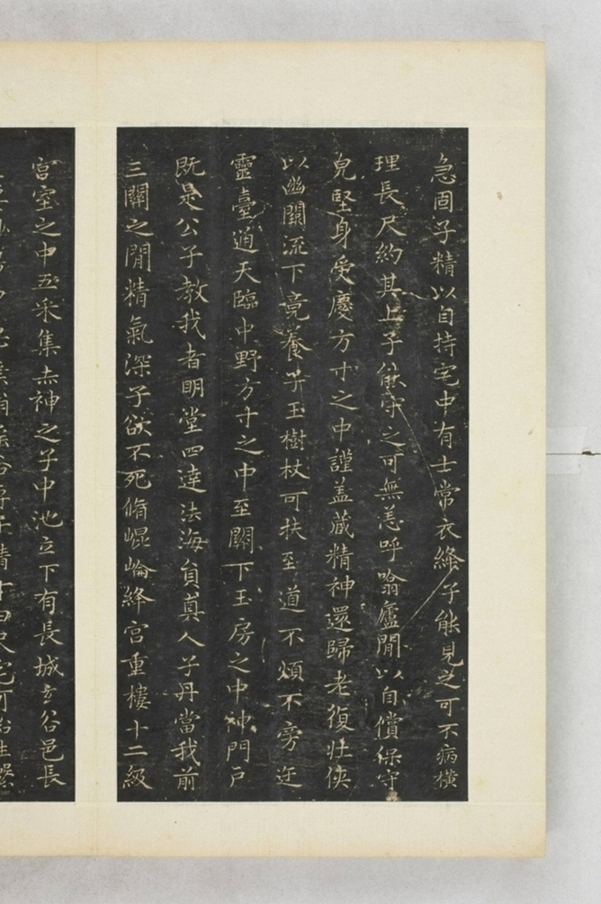 急固子精以自持宅中有士常衣絳子能見之可不病橫
理長尺約其上子能守之可無恙呼噏廬間以自償保守
皃堅身受慶方寸之中謹盖藏精神還歸老復壯俠
以幽闕流下竟養子玉樹杖可扶至道不煩不旁迕
靈臺通天臨中野方寸之中至闕下玉房之中神門戶
既是公子教我者明堂四達法海員真人子丹當我前
三關之間精氣深子欲不死脩崐崘絳宮重樓十二級
宮室之中五采集赤神之子中池立下有長城玄谷邑長